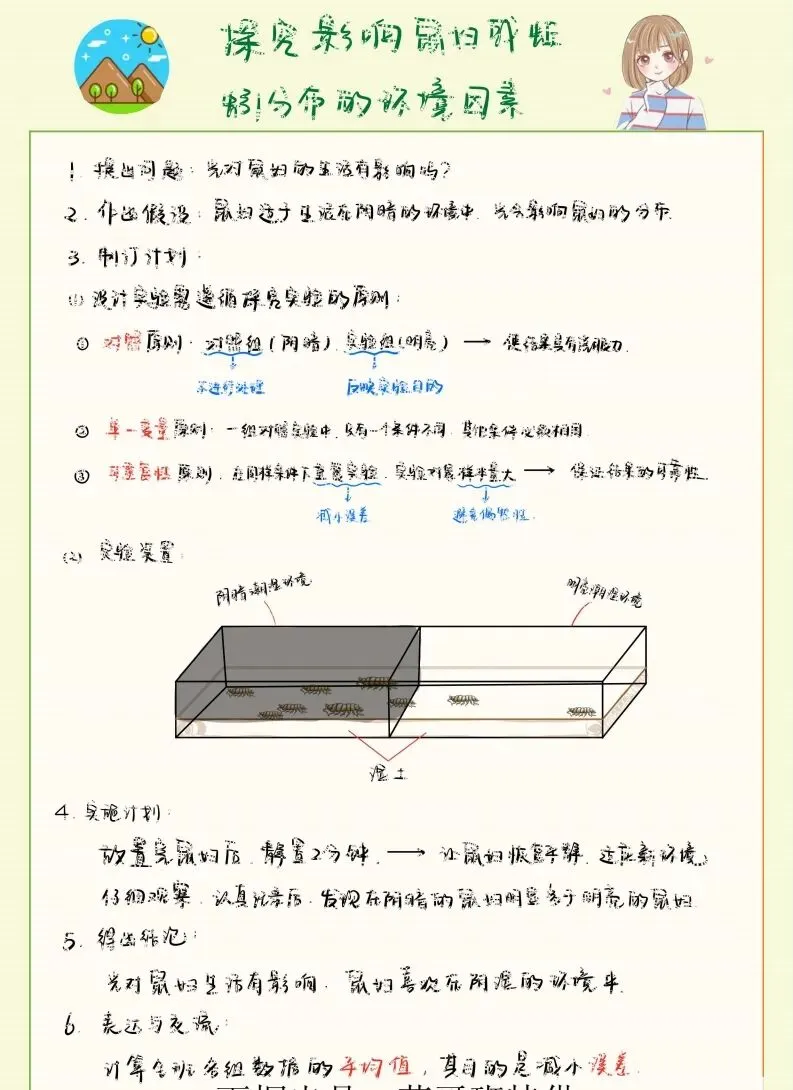 探究影响鼠妇或蚯
蚓分布的环境因素
1. 提出问题：光对鼠妇的生活有影响吗？
2. 作出假设：鼠妇适于生活在阴暗的环境中，光会影响鼠妇的分布
3. 制订计划：
(1) 设计实验需遵循探究实验的原则：
① 对照原则：对照组(阴暗)，实验组(明亮) → 使结果具有说服力.
不进行处理 反映实验目的
② 单一变量原则：一组对照实验中，只有一个条件不同，其他条件必须相同.
③ 可重复性原则，在同样条件下重复实验，实验对象样本量大 → 保证结果的可靠性.
减小误差 避免偶然性.
(2) 实验装置：
阴暗潮湿环境 明亮潮湿环境
湿土
4. 实施计划：
放置完鼠妇后，静置2分钟， → 让鼠妇恢复平静，适应新环境；
仔细观察，认真记录后，发现在阴暗的鼠妇明显多于明亮的鼠妇.
5. 得出结论：
光对鼠妇生活有影响，鼠妇喜欢在阴湿的环境中.
6. 表达与交流：
计算全班各组数据的平均值，其目的是减小误差.